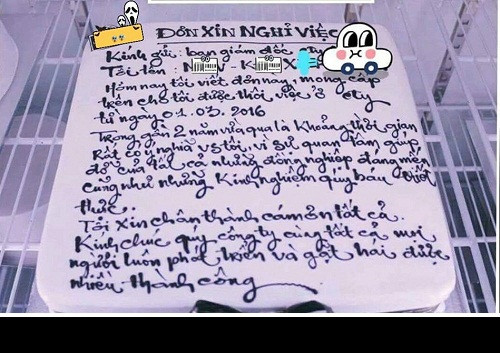 ĐƠN XIN NGHỈ VIỆC
Kính gửi : ban giám đốc ty
Tôi tên : N - K X
Hôm nay tôi viết đơn này, mong cấp
trên cho tôi được thôi việc ở cty
từ ngày 01.03.2016
Trong gần 2 năm vừa qua là khoảng thời gian
Rất có ý nghĩa vs tôi, vì sự quan tâm giúp
đỡ của tất cả những đồng nghiệp đáng mến
cũng như những kinh nghiệm quý báu
thức.
Tôi xin chân thành cám ơn tất cả.
Kính chúc quý công ty cùng tất cả mọi
người luôn phát triển và gặt hái được
nhiều thành công